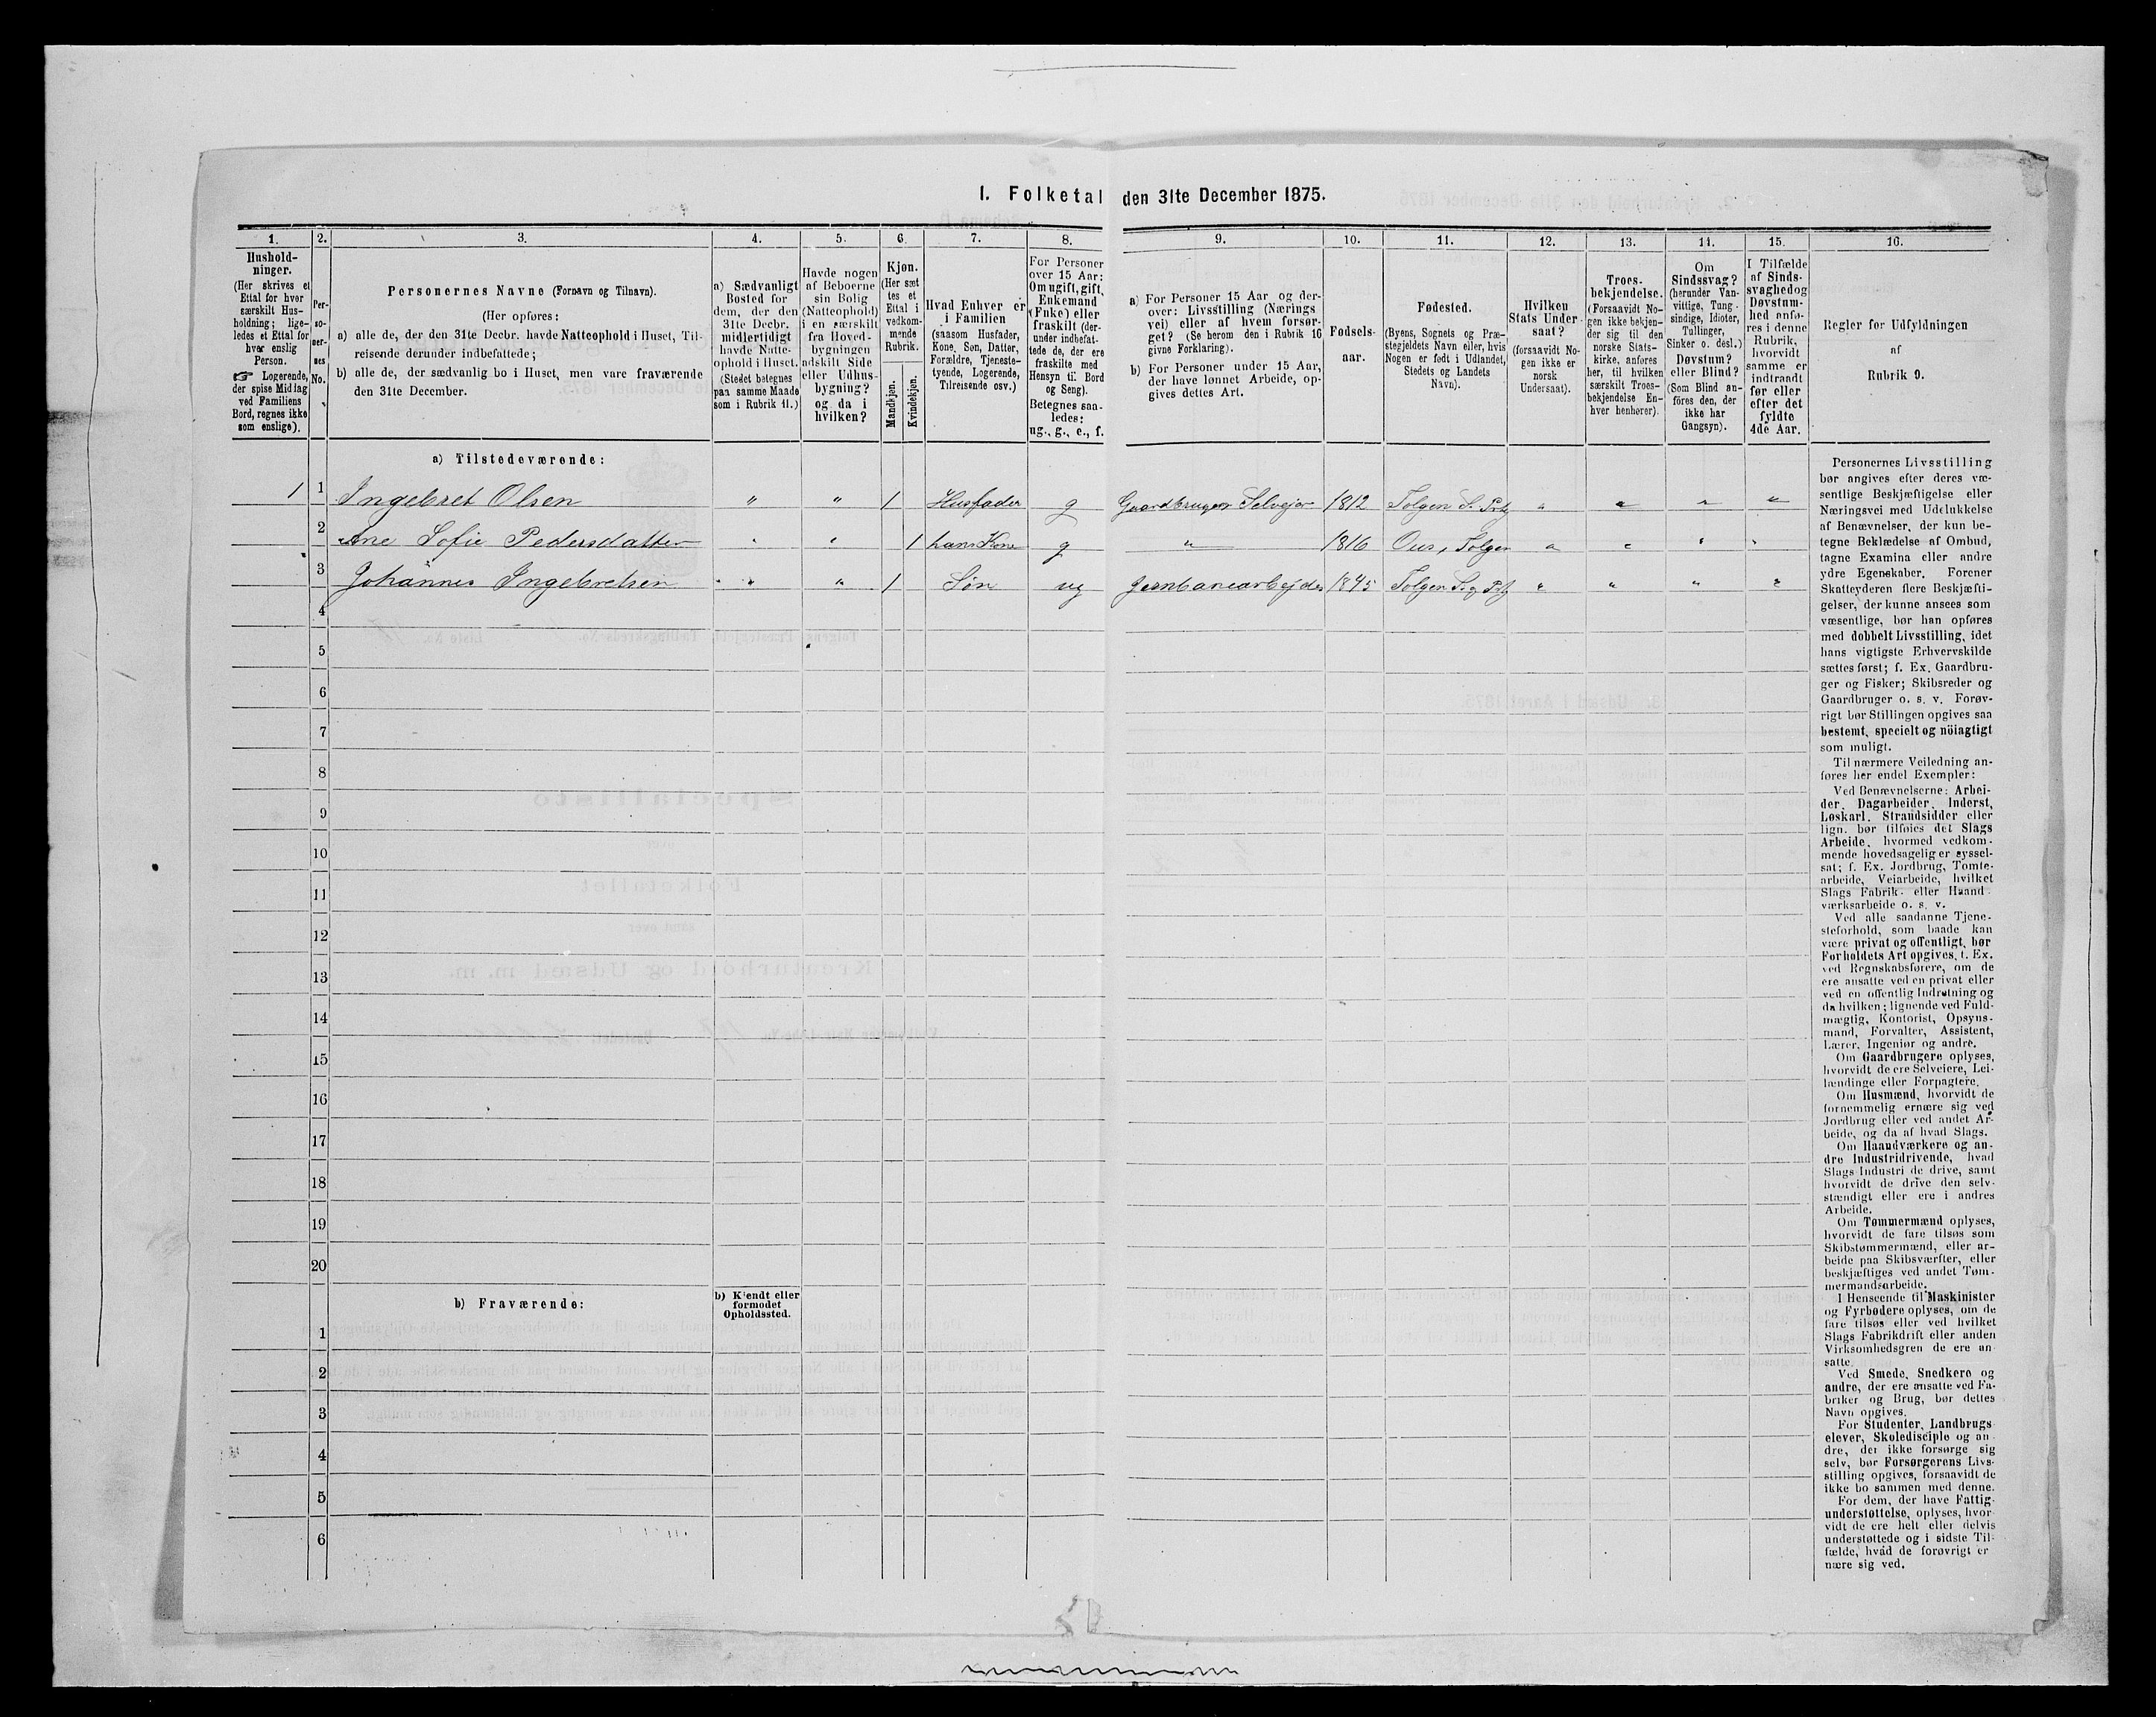 I. Folketal den 31te December 1875.
1. 2. 3. 4. 5. 6. 7. 8. 9. 10. 11. 12. 13. 14. 15. 16.
Hushold-
ninger.
(Her skrives et
Ettal for hver
særskilt Hus-
holdning; lige-
ledes et Ettal for
hver enslig
Person.
☞ Logerende,
der spise Middag
ved Familiens
Bord, regnes ikke
som enslige).
Per-
so-
ner-
nes
No.
Personernes Navne (Fornavn og Tilnavn).
(Her opføres:
a) alle de, der den 31te Decbr. havde Natteophold i Huset, Til-
reisende derunder indbefattede;
b) alle de, der sædvanlig bo i Huset, men vare fraværende
den 31te December.
a) Sædvanligt
Bosted for
dem, der den
31te Decbr.
midlertidigt
havde Natte-
ophold i Huset.
(Stedet betegnes
paa samme Maade
som i Rubrik 11.)
Havde nogen
af Beboerne
sin Bolig
(Natteophold)
i en særskilt
fra Hoved-
bygningen
adskilt Side
eller Udhus-
bygning?
og da i
hvilken?
Kjøn.
(Her sæt
tes et
Ettal i
vedkom-
mende
Rubrik.
Mandkjøn.
Kvindekjøn.
Hvad Enhver er
i Familien
(saasom Husfader,
Kone, Søn, Datter,
Forældre, Tjeneste-
tyende, Logerende,
Tilreisende osv.)
For Personer
over 15 Aar:
Om ugift, gift,
Enkemand
(Enke) eller
fraskilt (der-
under indbefat-
tede de, der ere
fraskilte med
Hensyn til Bord
og Seng).
Betegnes saa-
ledes:
ug., g., e., f.
a) For Personer 15 Aar og der-
over: Livsstilling (Nærings
vei) eller af hvem forsør-
get? (Se herom den i Rubrik 16
givne Forklaring).
b) For Personer under 15 Aar,
der have lønnet Arbeide, op-
gives dettes Art.
Fødsels-
aar.
Fødested.
(Byens, Sognets og Præ-
stegjeldets Navn eller, hvis
Nogen er født i Udlandet,
Stedets og Landets
Navn).
Hvilken
Stats Under-
saat?
(forsaavidt No-
gen ikke er
norsk
Undersaat).
Troes-
bekjendelse.
(Forsaavidt No-
gen ikke bekjen-
der sig til den
norske Stats-
kirke, anføres
her, til hvilken
særskilt Troes-
bekjendelse En-
hver henhører).
Om
Sindssvag?
(herunder Van-
vittige, Tung-
sindige, Idioter,
Tullinger,
Sinker o. desl.)
Døvstum?
eller Blind?
(Som Blind an-
føres den, der
ikke har
Gangsyn).
I Tilfælde
af Sinds-
svaghed og
Døvstum-
hed anfø-
res i denne
Rubrik,
hvorvidt
samme er
indtraadt
før eller
efter det
fyldte
4de Aar.
Regler for Udfyldningen
af
Rubrik 9.
a) Tilstedeværende:
1 1 Ingebret Olsen " " 1 Husfader g Gaardbruger Selvejer 1812 Tolgen S. Prtg " " " "
2 Ane Sofie Pedersdatter " " 1 hans Kone g " 1816 Ous, Tolgen " " " "
3 Johannes Ingebretsen " " 1 Søn ug Jernbanearbejder 1845 Tolgen S. g Prtg " " " "
4
5
6
7
8
9
10
11
12
13
14
15
16
17
18
19
20
b) Fraværende:
b) Kjendt eller
formodet
Opholdssted.
1
2
3
4
5
6
Personernes Livsstilling
bør angives efter deres væ-
sentlige Beskjæftigelse eller
Næringsvei med Udelukkelse
af Benævnelser, der kun be-
tegne Beklædelse af Ombud,
tagne Examina eller andre
ydre Egenskaber. Forener
Skatteyderen flere Beskjæfti-
gelser, der kunne ansees som
væsentlige, bør han opføres
med dobbelt Livsstilling, idet
hans vigtigste Erhvervskilde
sættes først; f. Ex. Gaardbru-
ger og Fisker; Skibsreder og
Gaardbruger o. s. v. Forøv-
rigt bør Stillingen opgives saa
bestemt, specielt og nöiagtigt
som muligt.
Til nærmere Veiledning an-
føres her endel Exempler:
Ved Benævnelserne: Arbei-
der, Dagarbeider, Inderst,
Løskarl, Strandsidder eller
lign. bør tilføies det Slags
Arbeide, hvormed vedkom-
mende hovedsagelig er syssel-
sat; f. Ex. Jordbrug, Tomte-
arbeide, Veiarbeide, hvilket
Slags Fabrik- eller Haand-
værksarbeide o. s. v.
Ved alle saadanne Tjene-
steforhold, som baade kan
være privat og offentligt, bør
Forholdets Art opgives, f. Ex.
ved Regnskabsførere, om de
ere ansatte ved en privat eller
ved en offentlig Indretning og
da hvilken; lignende ved Fuld-
mægtig, Kontorist, Opsyns-
mand, Forvalter, Assistent,
Lærer, Ingeniør og andre.
Om Gaardbrugere oplyses,
hvorvidt de ere Selveiere, Lei-
lændinge eller Forpagtere.
Om Husmænd, hvorvidt de
fornemmelig ernære sig ved
Jordbrug eller ved andet Ar-
beide, og da af hvad Slags.
Om Haandværkere og an-
dre Industridrivende, hvad
Slags Industri de drive, samt
hvorvidt de drive den selv-
stændigt eller ere i andres
Arbeide.
Om Tømmermænd oplyses,
hvorvidt de fare tilsøs som
Skibstømmermænd, eller ar-
beide paa Skibsværfter, eller
beskjæftiges ved andet Tøm-
mermandsarbeide.
I Henseende til Maskinister
og Fyrbødere oplyses, om de
fare tilsøs eller ved hvilket
Slags Fabrikdrift eller anden
Virksomhedsgren de ere an-
satte.
Ved Smede, Snedkere og
andre, der ere ansatte ved Fa-
briker og Brug, bør dettes
Navn opgives.
For Studenter, Landbrugs-
elever, Skoledisciple og an-
dre, der ikke forsørge sig
selv, bør Forsørgerens Livs-
stilling opgives, forsaavidt de
ikke bo sammen med denne.
For dem, der have Fattig-
understøttelse, oplyses, hvor-
vidt de ere helt eller delvis
understøttede og i sidste Til-
fælde, hvad de forøvrigt er-
nære sig ved.